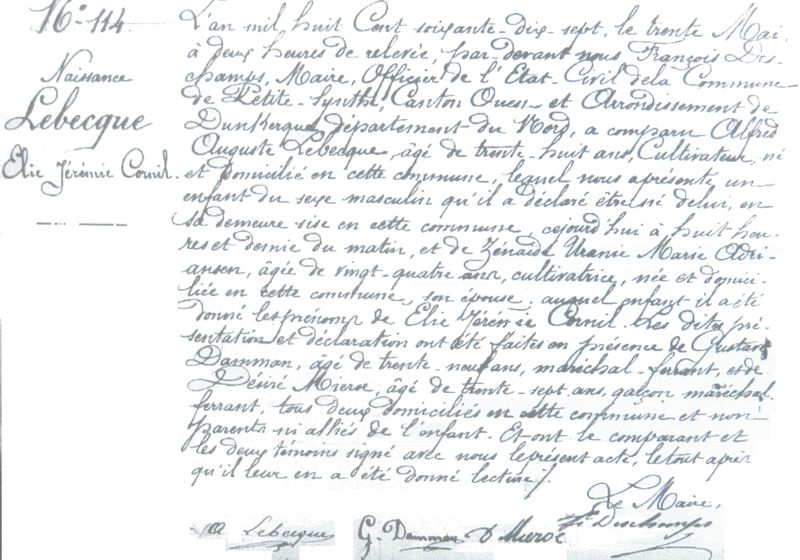 N° 114
Naissance
Lebecque
Elie Jérémie Cornil.
L'an mil huit Cent soixante-dix-sept, le trente Mai,
à deux heures de relevée, par-devant nous François Des-
champs, Maire, Officier de l'Etat-Civil de la Commune
de Petite-Synthe, Canton Ouest et Arrondissement de
Dunkerque, département du Nord, a comparu Alfred
Auguste Lebecque, âgé de trente-huit ans, Cultivateur, né
et domicilié en cette commune, lequel nous a présenté un
enfant du sexe masculin qu'il a déclaré être né de lui, en
sa demeure sise en cette commune, cejourd'hui à huit heu-
res et demie du matin, et de Zénaïde Uranie Marie Adri-
ansen, âgée de vingt-quatre ans, cultivatrice, née et domici-
liée en cette commune, son épouse; auquel enfant il a été
donné les prénoms de Elie Jérémie Cornil. Les dites pré-
sentation et déclaration ont été faites en présence de Gustave
Damman, âgé de trente-neuf ans, maréchal-ferrant, et de
Désiré Mieroe, âgé de trente-sept ans, garçon maréchal
ferrant, tous deux domiciliés en cette commune et non
parents ni alliés de l'enfant. Et ont le comparant et
les deux témoins signé avec nous le présent acte, le tout après
qu'il leur en a été donné lecture./.
Le Maire,
Lebecque G. Damman D Mieroe Fs Deschamps